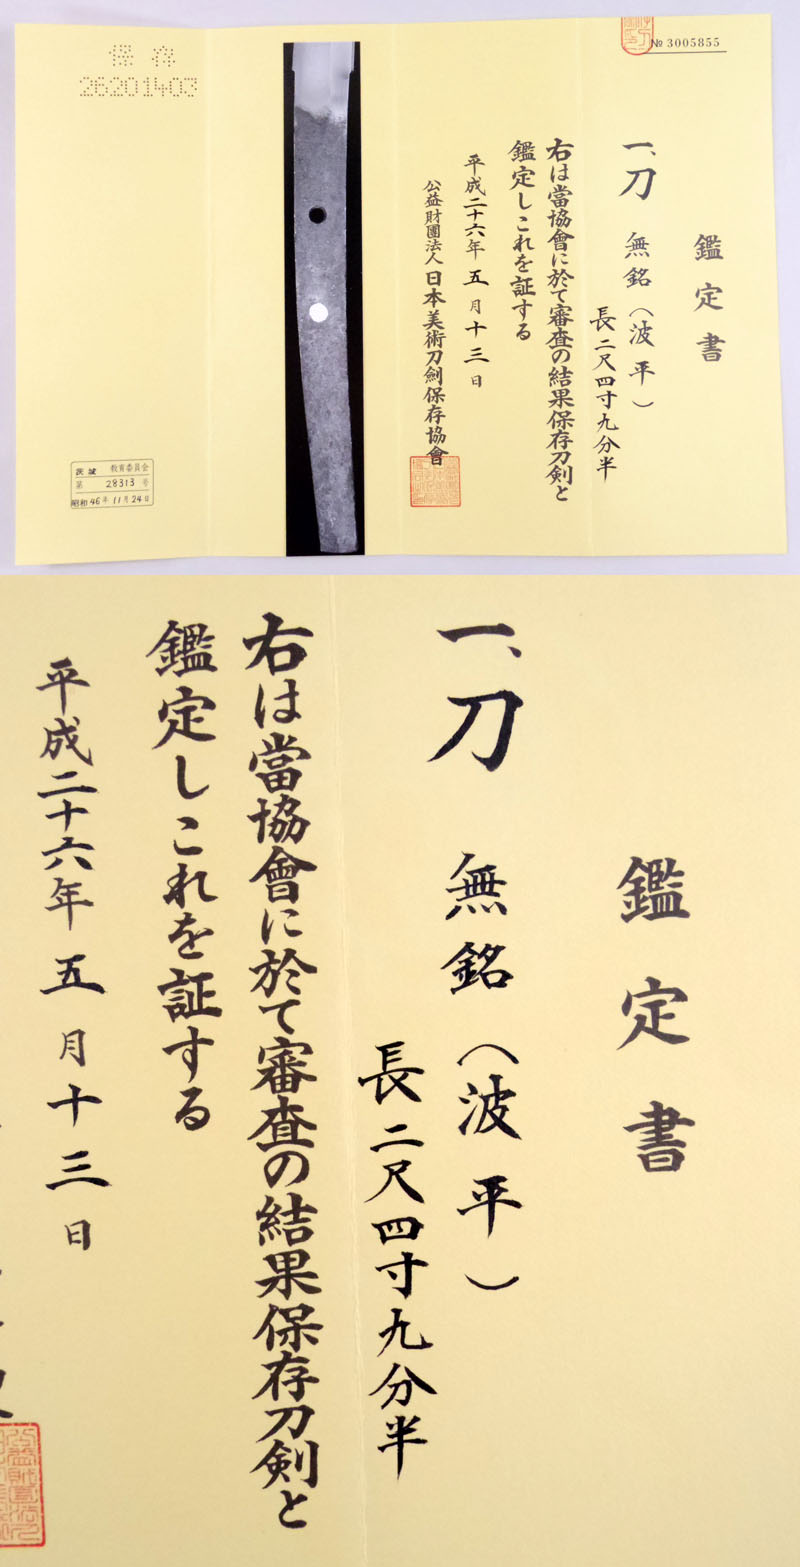 № 3005855
鑑定書
一、刀 無銘（波平）
長二尺四寸九分半
右は當協會に於て審査の結果保存刀剣と
鑑定しこれを証する
平成二十六年五月十三日
公益財團法人日本美術刀劍保存協會
保存
26201403
茨城 教育委員会
第 28313 号
昭和46年11月24日
鑑定書
一、刀 無銘（波平）
長二尺四寸九分半
右は當協會に於て審査の結果保存刀剣と
鑑定しこれを証する
平成二十六年五月十三日